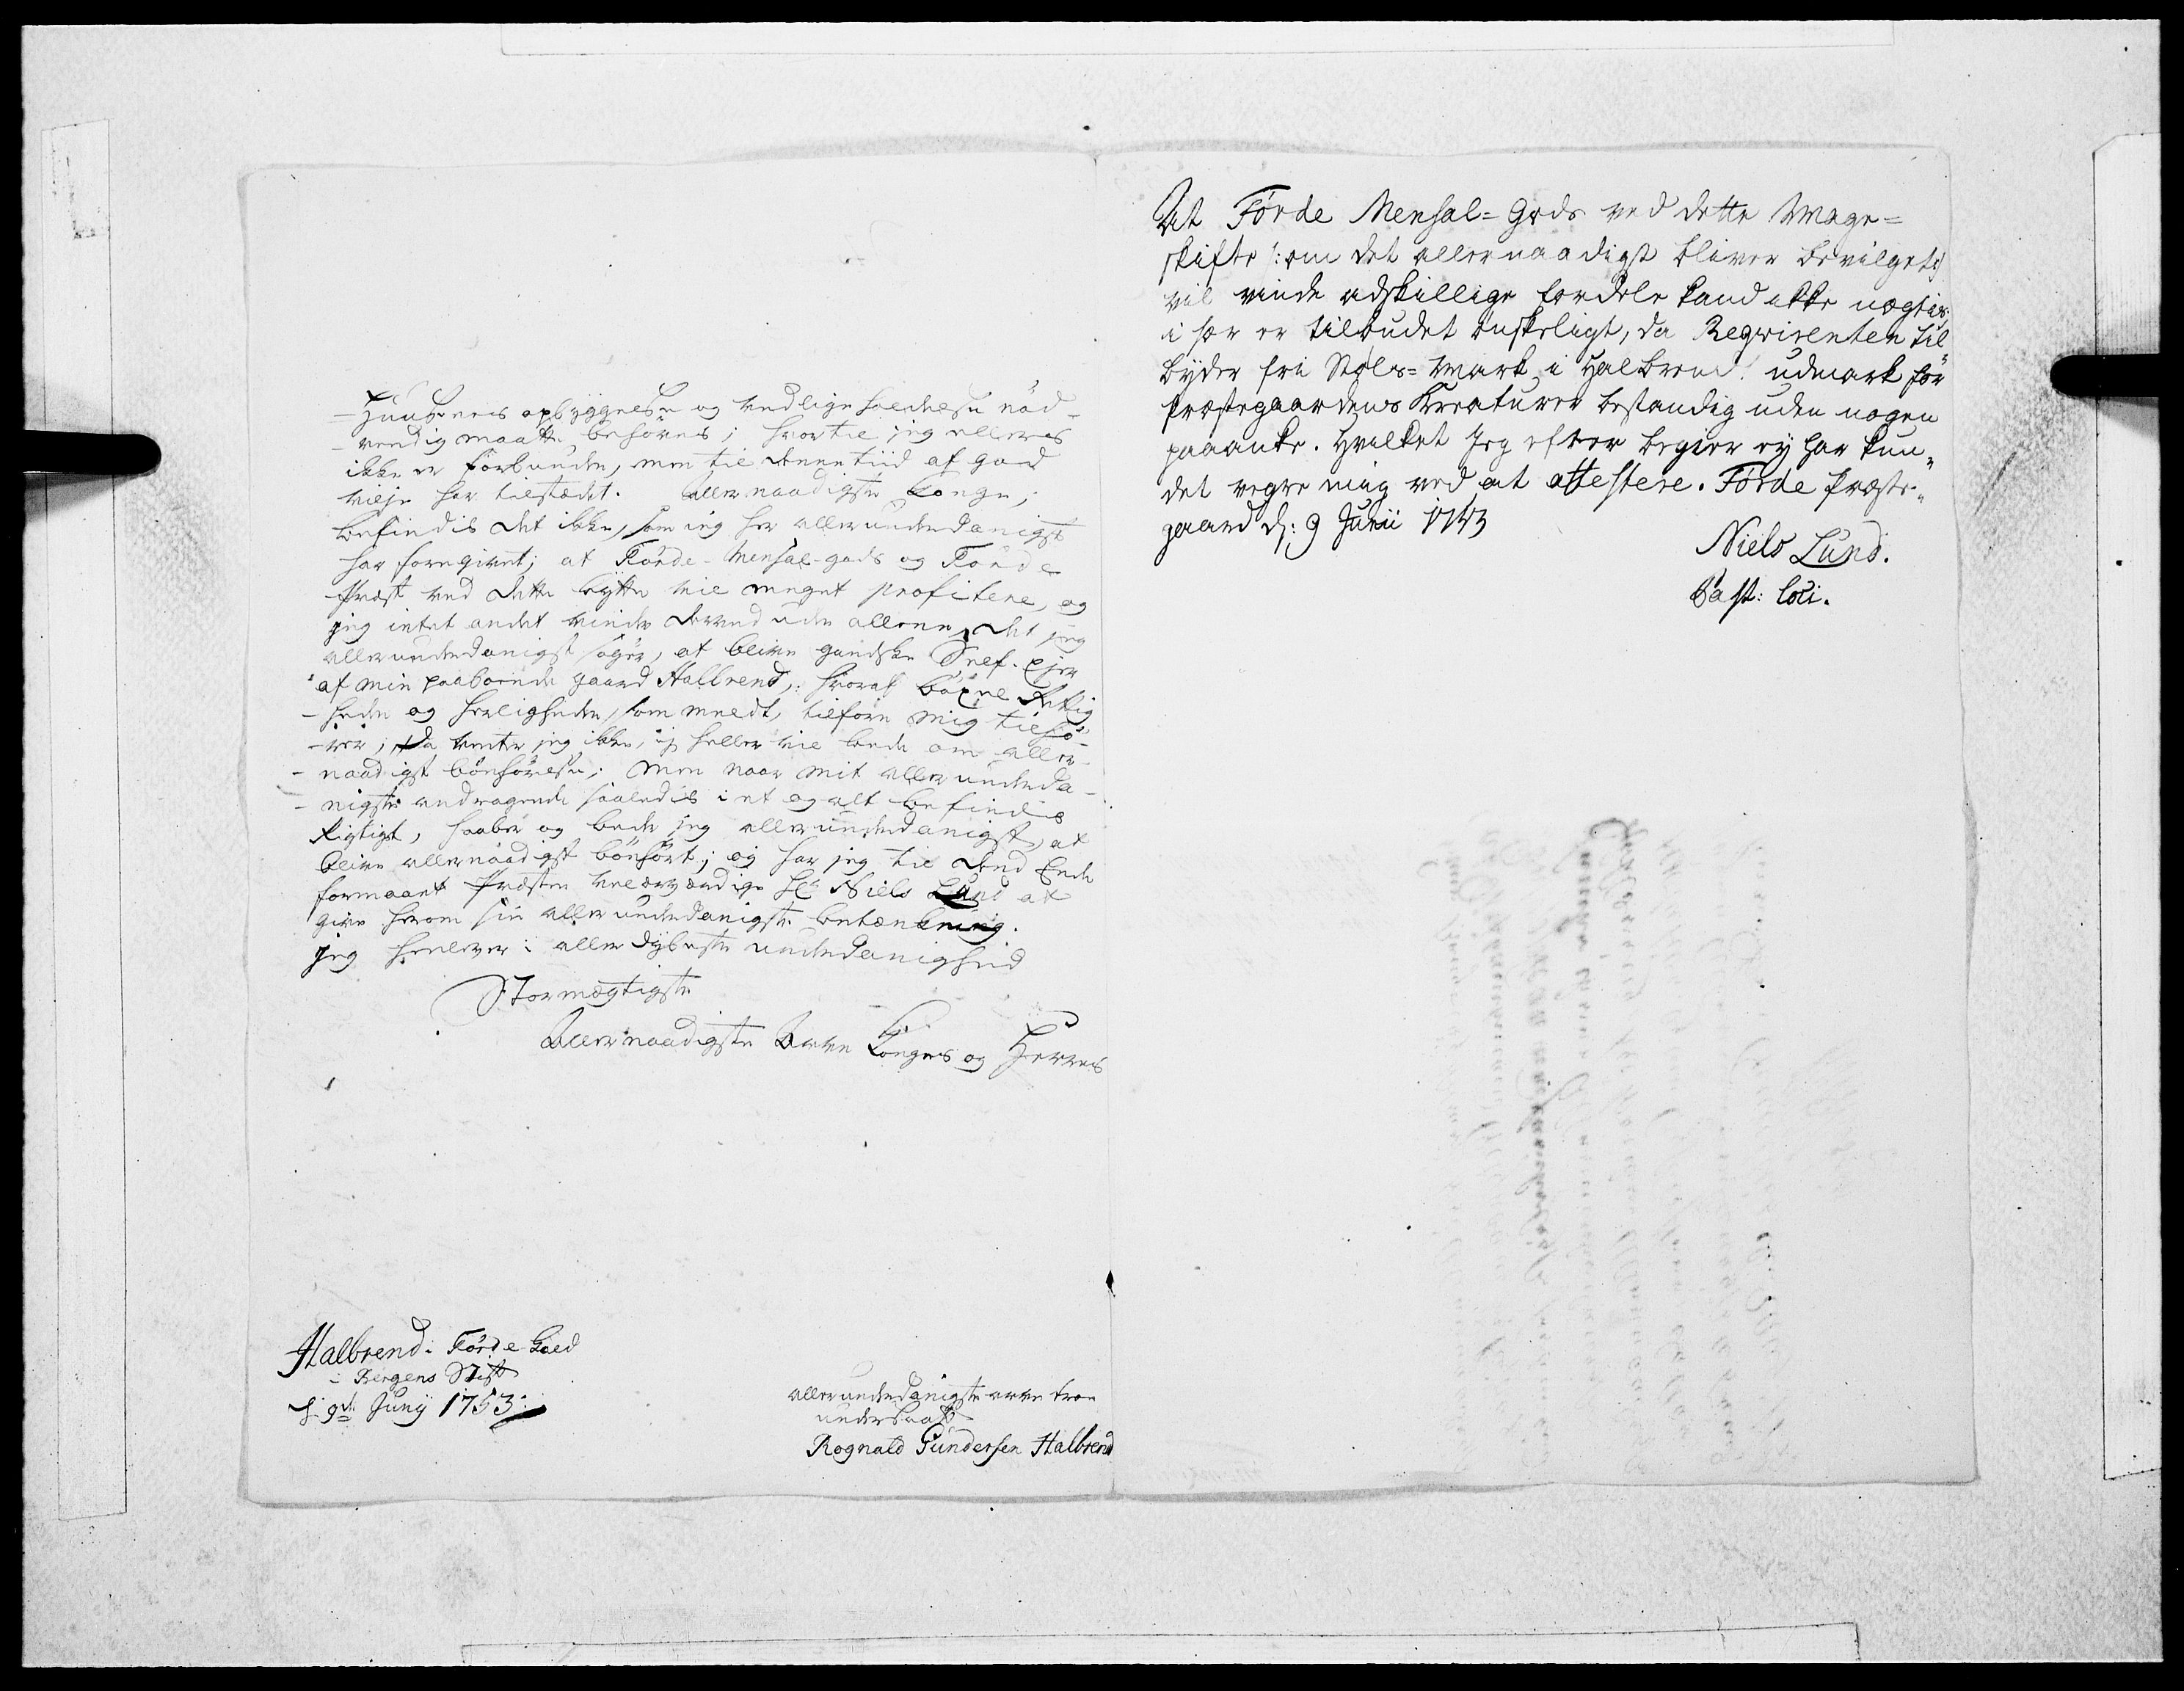 Huusenis opbyggelse og vedligeholdelse nød-
-vendig maatte behøves; hvortil jeg ellers
ikke er forbunden, men til denne tiid af god
vilje har tilstædt. Allernaadigste Konge,
befindis det ikke, som jeg her allerunderdanigst
har foregivet; at Førde-Mensal-gods og Førde
Præst ved dette bytte vil meget profitere, og
jeg intet andet vinder derved uden allene det jeg
allerunderdanigst søger, at blive gandske Self-Ejer
af min paaboende gaard Halbrend, hvoraf bøxel Rettig
-heden og herligheden, som meldt, tilforn mig tilhø-
-rer; da venter jeg ikke, ej heller vil bede om aller-
-naadigst bønhørelse; Men naar mit allerunderda-
-nigste andragende saaledis i et og alt befindis
Rigtigt, haaber og beder jeg allerunderdanigst, at
blive allernaadigst bønhørt; og har jeg til dend Ende
formaaet Præsten velærværdige Hr Niels Lund at
give herom sin allerunderdanigste betænkning.
jeg henlever i aller dybeste underdanighed
Stormægtigste
Allernaadigste Arve Konges og Herres
Halbrend i Førde
i Bergens Stift
d: 9de Junij 1753
allerunderdanigste arve troe
undersaat
Rognald Gundersen Halbrend
At Førde Mensal=Gods ved dette Mage=
skifte /: om det allernaadigst bliver bevilget :/
vil vinde adskillige fordele kand ikke nægtes,
i sær er tilbudet ønskeligt, da Reqvirenten til
byder fri Støls=Mark i Halbrend udmark for
Præstegaardens Kreaturer bestandig uden nogen
paaanke. Hvilket jeg efter begier ej har kun¬
det vegre mig ved at attestere. Førde Præste¬
gaard d: 9 Junii 1753
Niels Lund.
Past: loci.